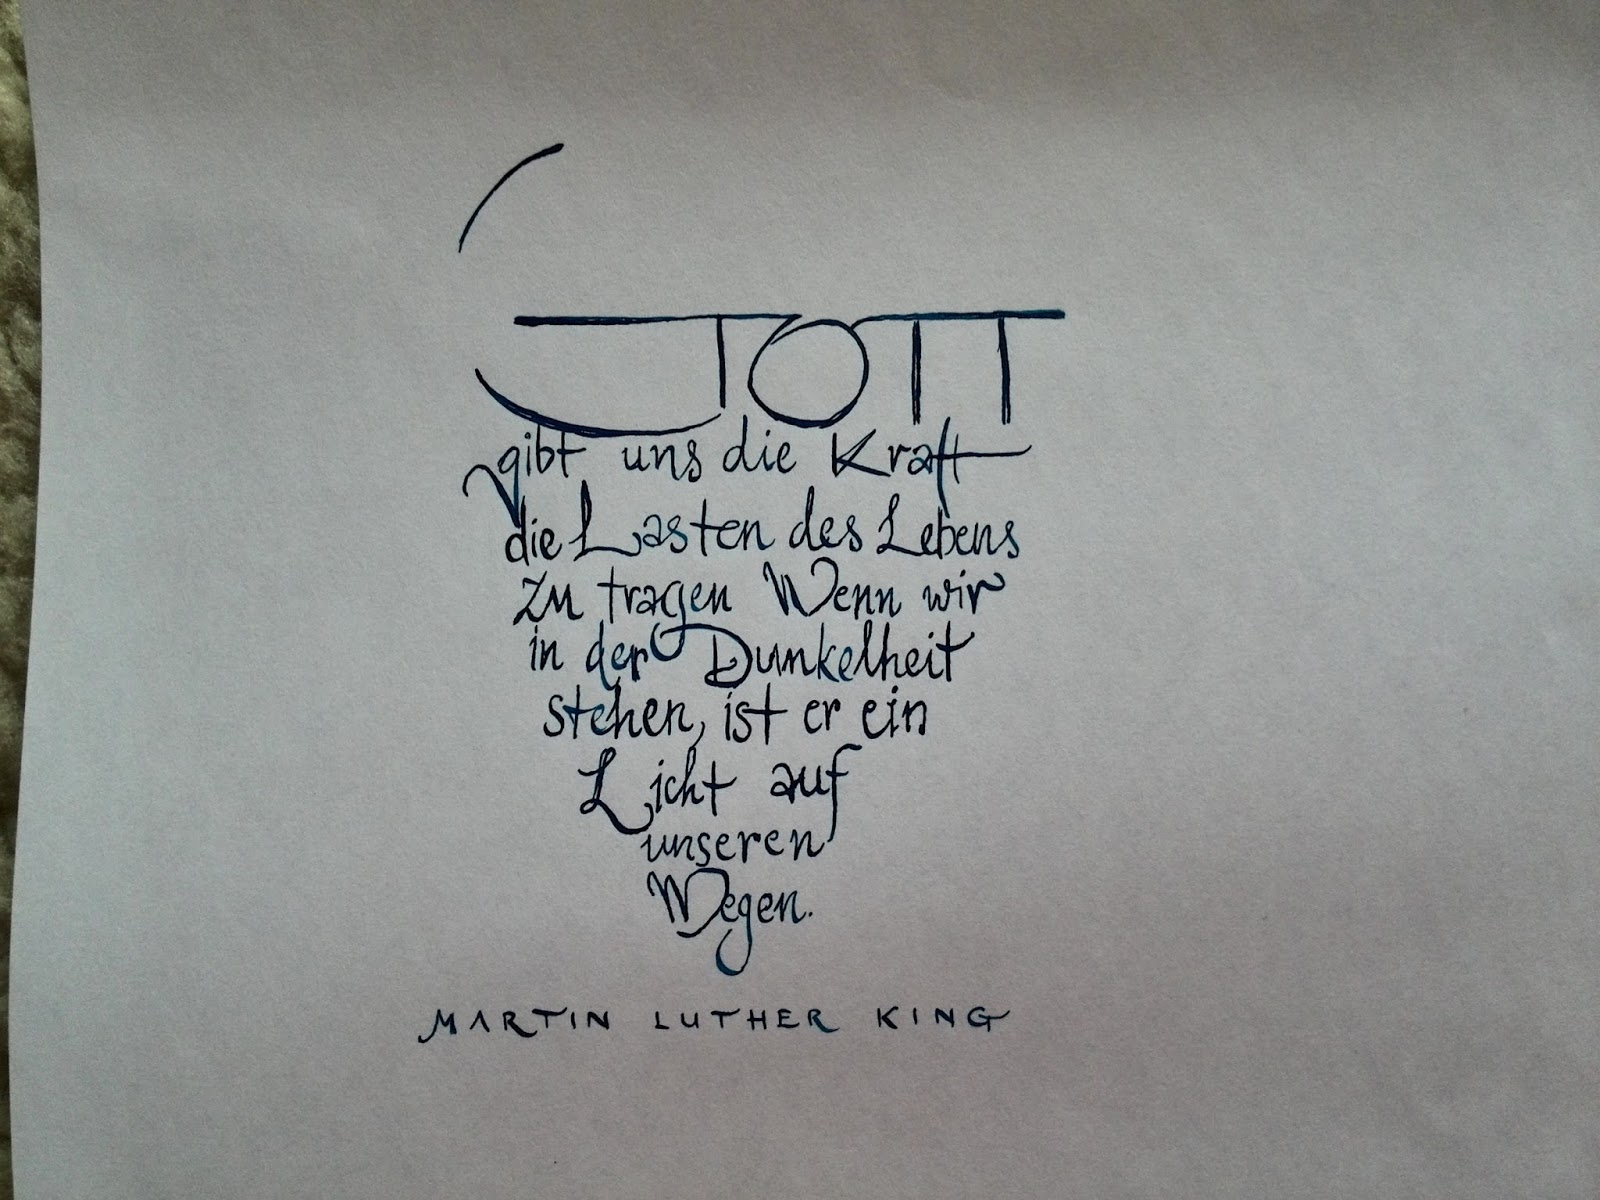 GOTT
gibt uns die Kraft
die Lasten des Lebens
zu tragen Wenn wir
in der Dunkelheit
stehen, ist er ein
Licht auf
unseren
Wegen.
MARTIN LUTHER KING